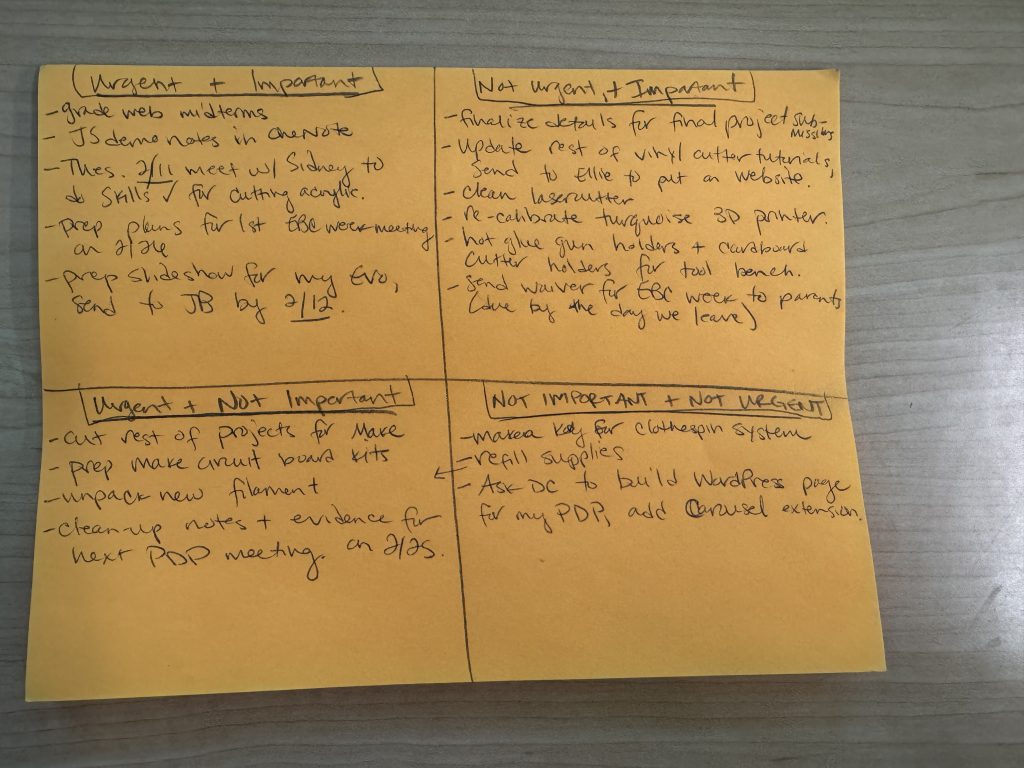 Urgent + Important
- grade web midterms
- JS demo notes in OneNote
- Tues. 2/11 meet w/ Sidney to
do Skills ✓ for cutting acrylic.
- prep plans for 1st EBC week meeting
on 2/24
- prep slideshow for my Evo,
send to JB by 2/12.
Not Urgent, + Important
- finalize details for final project sub-
missions
- update rest of vinyl cutter tutorials,
send to Ellie to put on website.
- clean lasercutter
- re-calibrate turquoise 3D printer.
- hot glue gun holders + cardboard
cutter holders for tool bench.
- send waiver for EBC week to parents
(due by the day we leave)
Urgent + Not Important
- cut rest of projects for Make
- prep make circuit board kits
- unpack new filament
- clean-up notes + evidence for
next PDP meeting. on 2/25.
NOT IMPORTANT + NOT URGENT
- make a key for clothespin system
- refill supplies
← - Ask DC to build WordPress page
for my PDP, add Carousel extension.